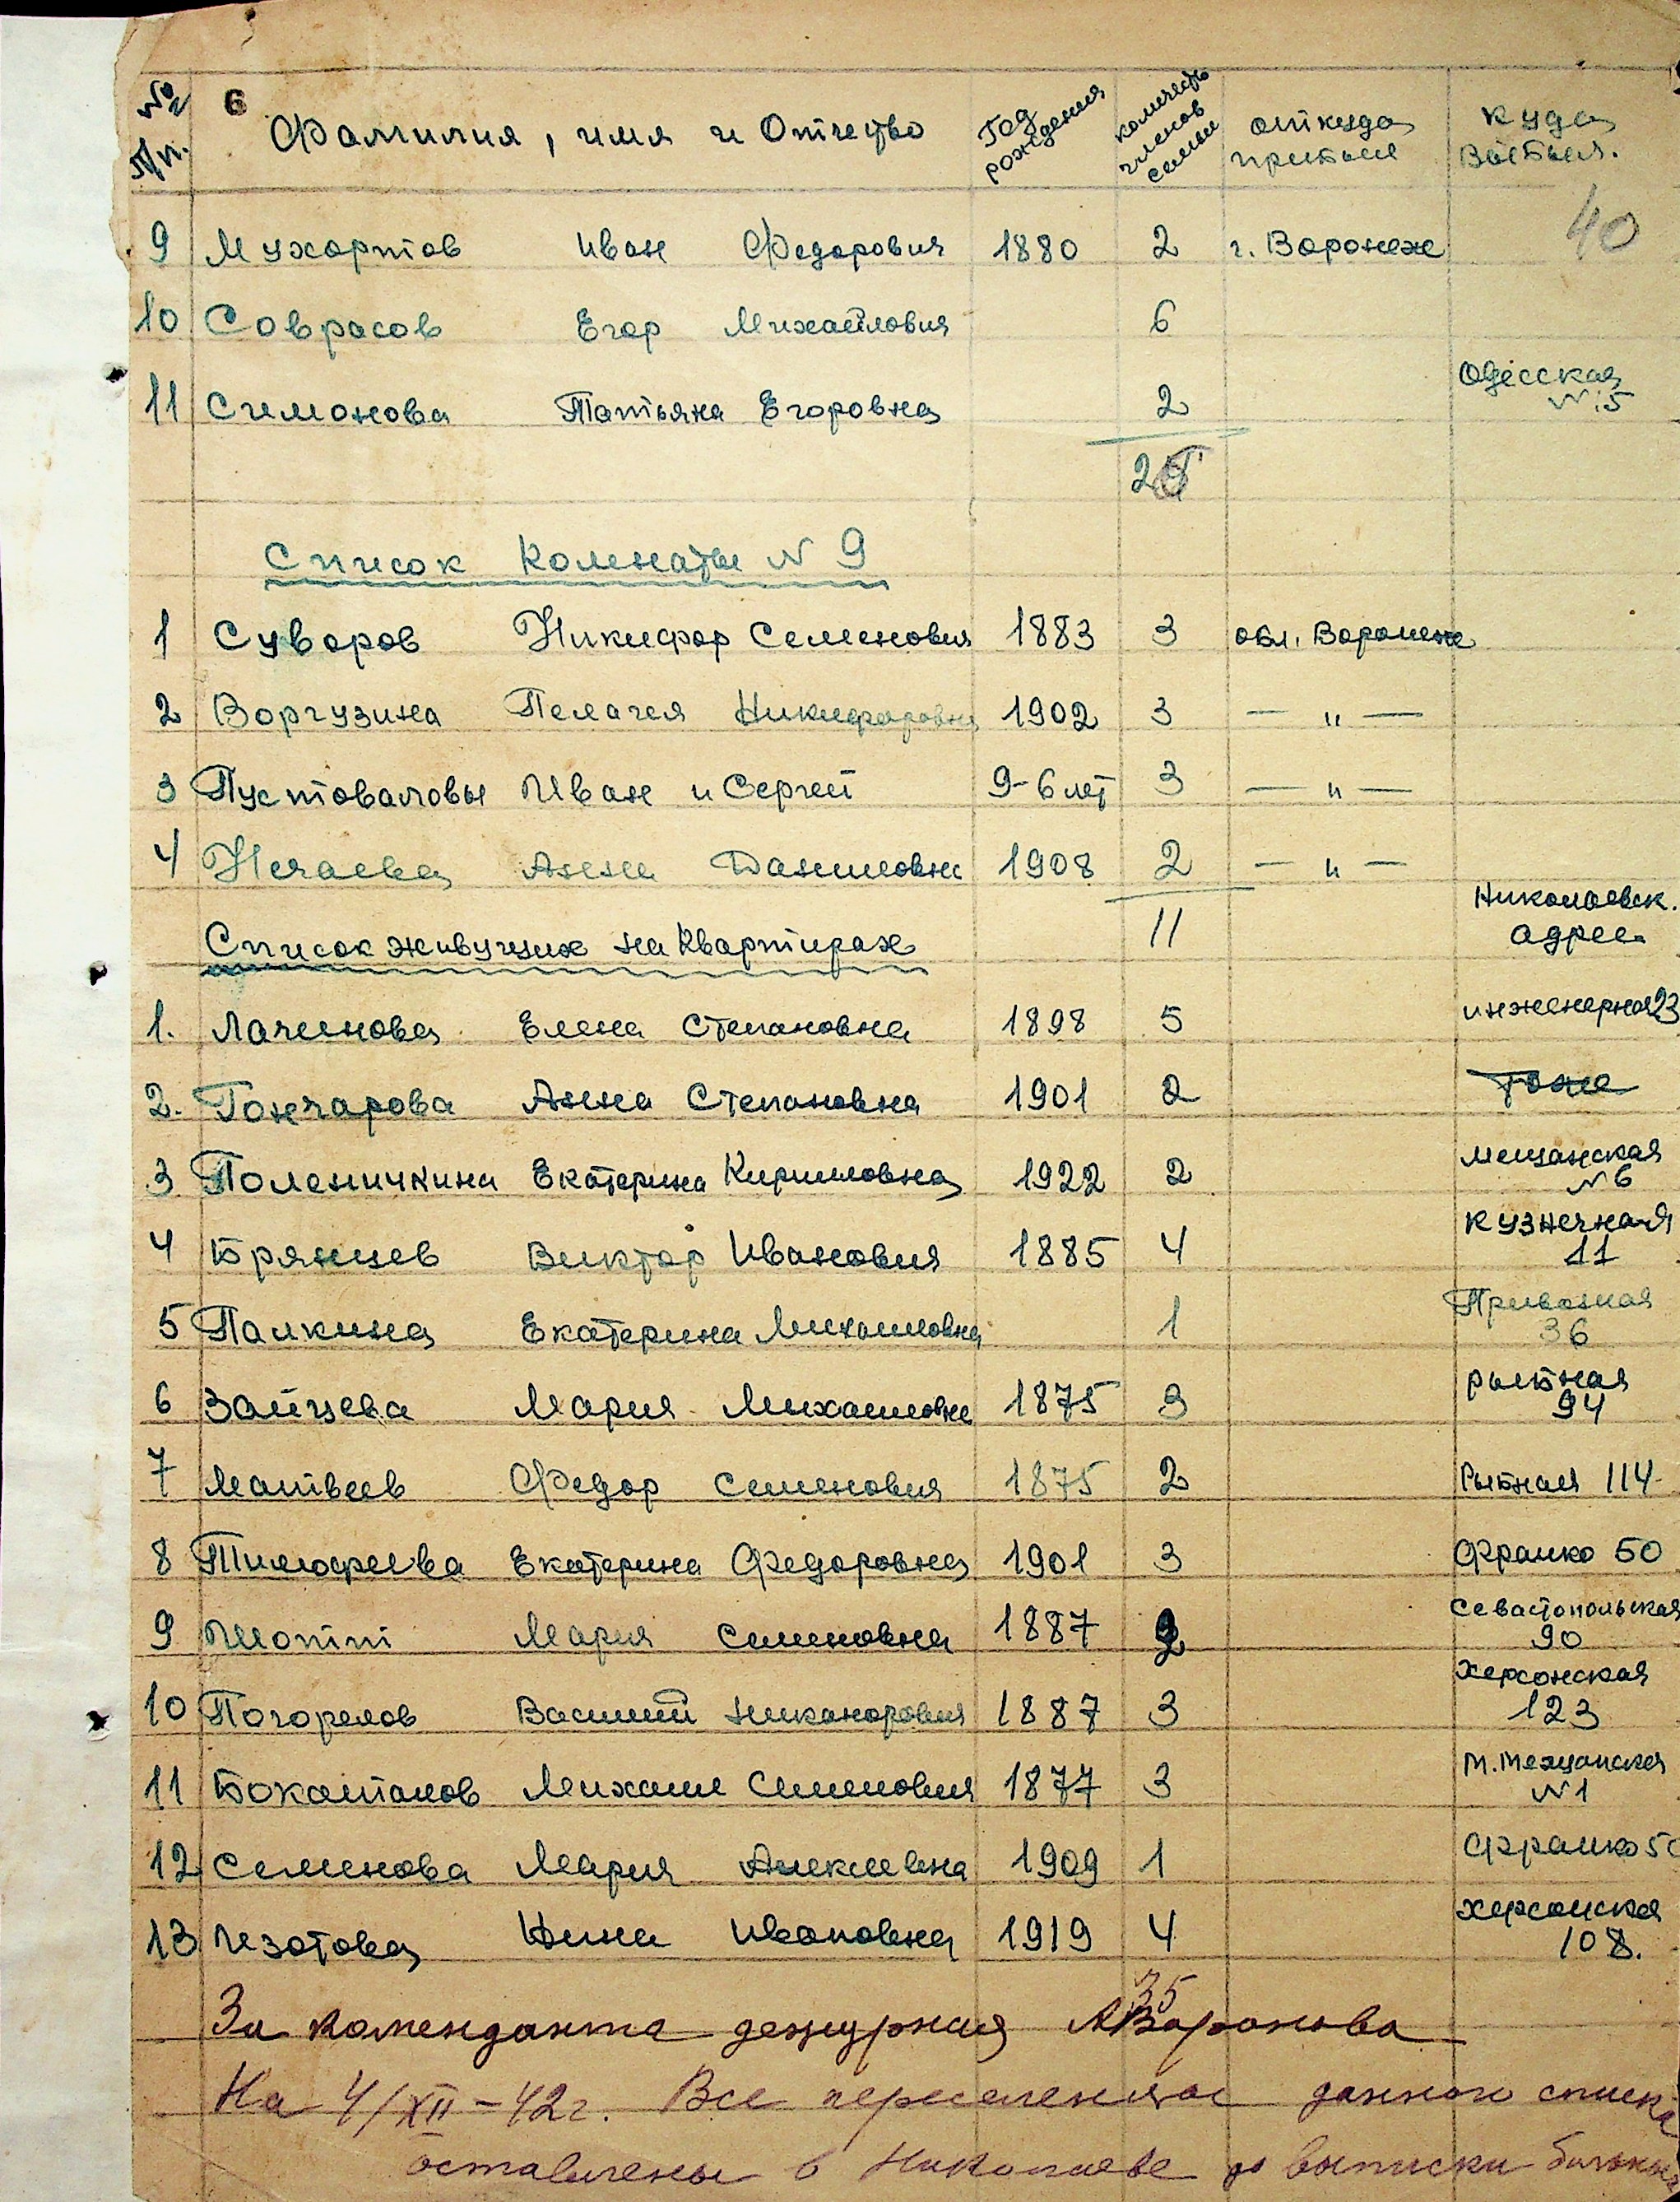 №№ п/п. 6 Фамилия, имя и Отчество Год рождения количеств членов семьи откуда прибыл куда выбыл.
40
9 Мухортов Иван Федорович 1880 2 г. Воронеж
10 Соврасов Егор Михайлович 6
11 Симонова Татьяна Егоровна 2 Одесская N 15
2
Список Комнаты N 9
1 Суворов Никифор Семенович 1883 3 обл. Воронеж
2 Воргузина Пелагея Никифоровна 1902 3 — " —
3 Пустоваловы Иван и Сергей 9-6 лет 3 — " —
4 Нечаева Анна Даниловна 1908 2 — " —
Список живущих на Квартирах 11 Николаевск. адрес.
1. Лачинова Елена Степановна 1898 5 инженерная 23
2. Гончарова Анна Степановна 1901 2 тоже
3 Поленичкина Екатерина Кирилловна 1922 2 мещанская N 6
4 Брянцев Виктор Иванович 1885 4 кузнечная 11
5 Палкина Екатерина Михайловна 1 Привозная 36
6 Зайцева Мария Михайловна 1875 3 рыбная 94
7 Матвеев Федор Семенович 1875 2 Рыбная 114
8 Тимофеева Екатерина Федоровна 1901 3 Франко 50
9 Шотт Мария Семеновна 1887 2 Севастопольская 90
10 Погорелов Василий Никанорович 1887 3 Херсонская 123
11 Бокатанов Михаил Семенович 1877 3 М. Мещанская N 1
12 Семенова Мария Алексеевна 1909 1 Франко 50
13 Изотова Нина Ивановна 1919 4 Херсонская 108.
35
За коменданта дежурная АВоронова
На 4/XII-42г. Все переселенцы данного списка
оставлены в Николаеве до выписки больных